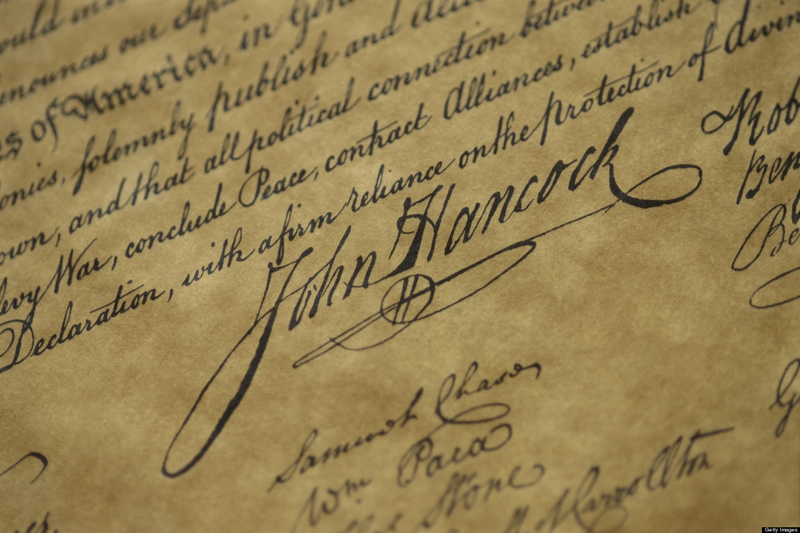 nounces our
s of America, in
onies, solemnly publish and
own, and that all political connection
levy War, conclude Peace, contract Alliances, establish
Declaration, with a firm reliance on the protection of divin
John Hancock
Samuel Chase
Wm Paca
Stone
Carrollton
Rob
Ben
Be
G
Getty Images